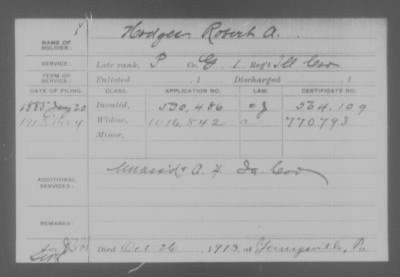 NAME OF SOLDIER: Hodges Robert A.
SERVICE: Late rank, P Co. G, 1 Reg't Ill Cav
TERM OF SERVICE: Enlisted , 1 Discharged , 1
DATE OF FILING. CLASS. APPLICATION NO. LAW. CERTIFICATE NO.
1885 Jany 20 Invalid, 530,486 564,109
191 Widow, 1016,842 770,793
Minor,
ADDITIONAL SERVICES: Unassi'd A. 7 Ia Cav
REMARKS:
Died Oct 26, 1913, at Youngsville, Pa